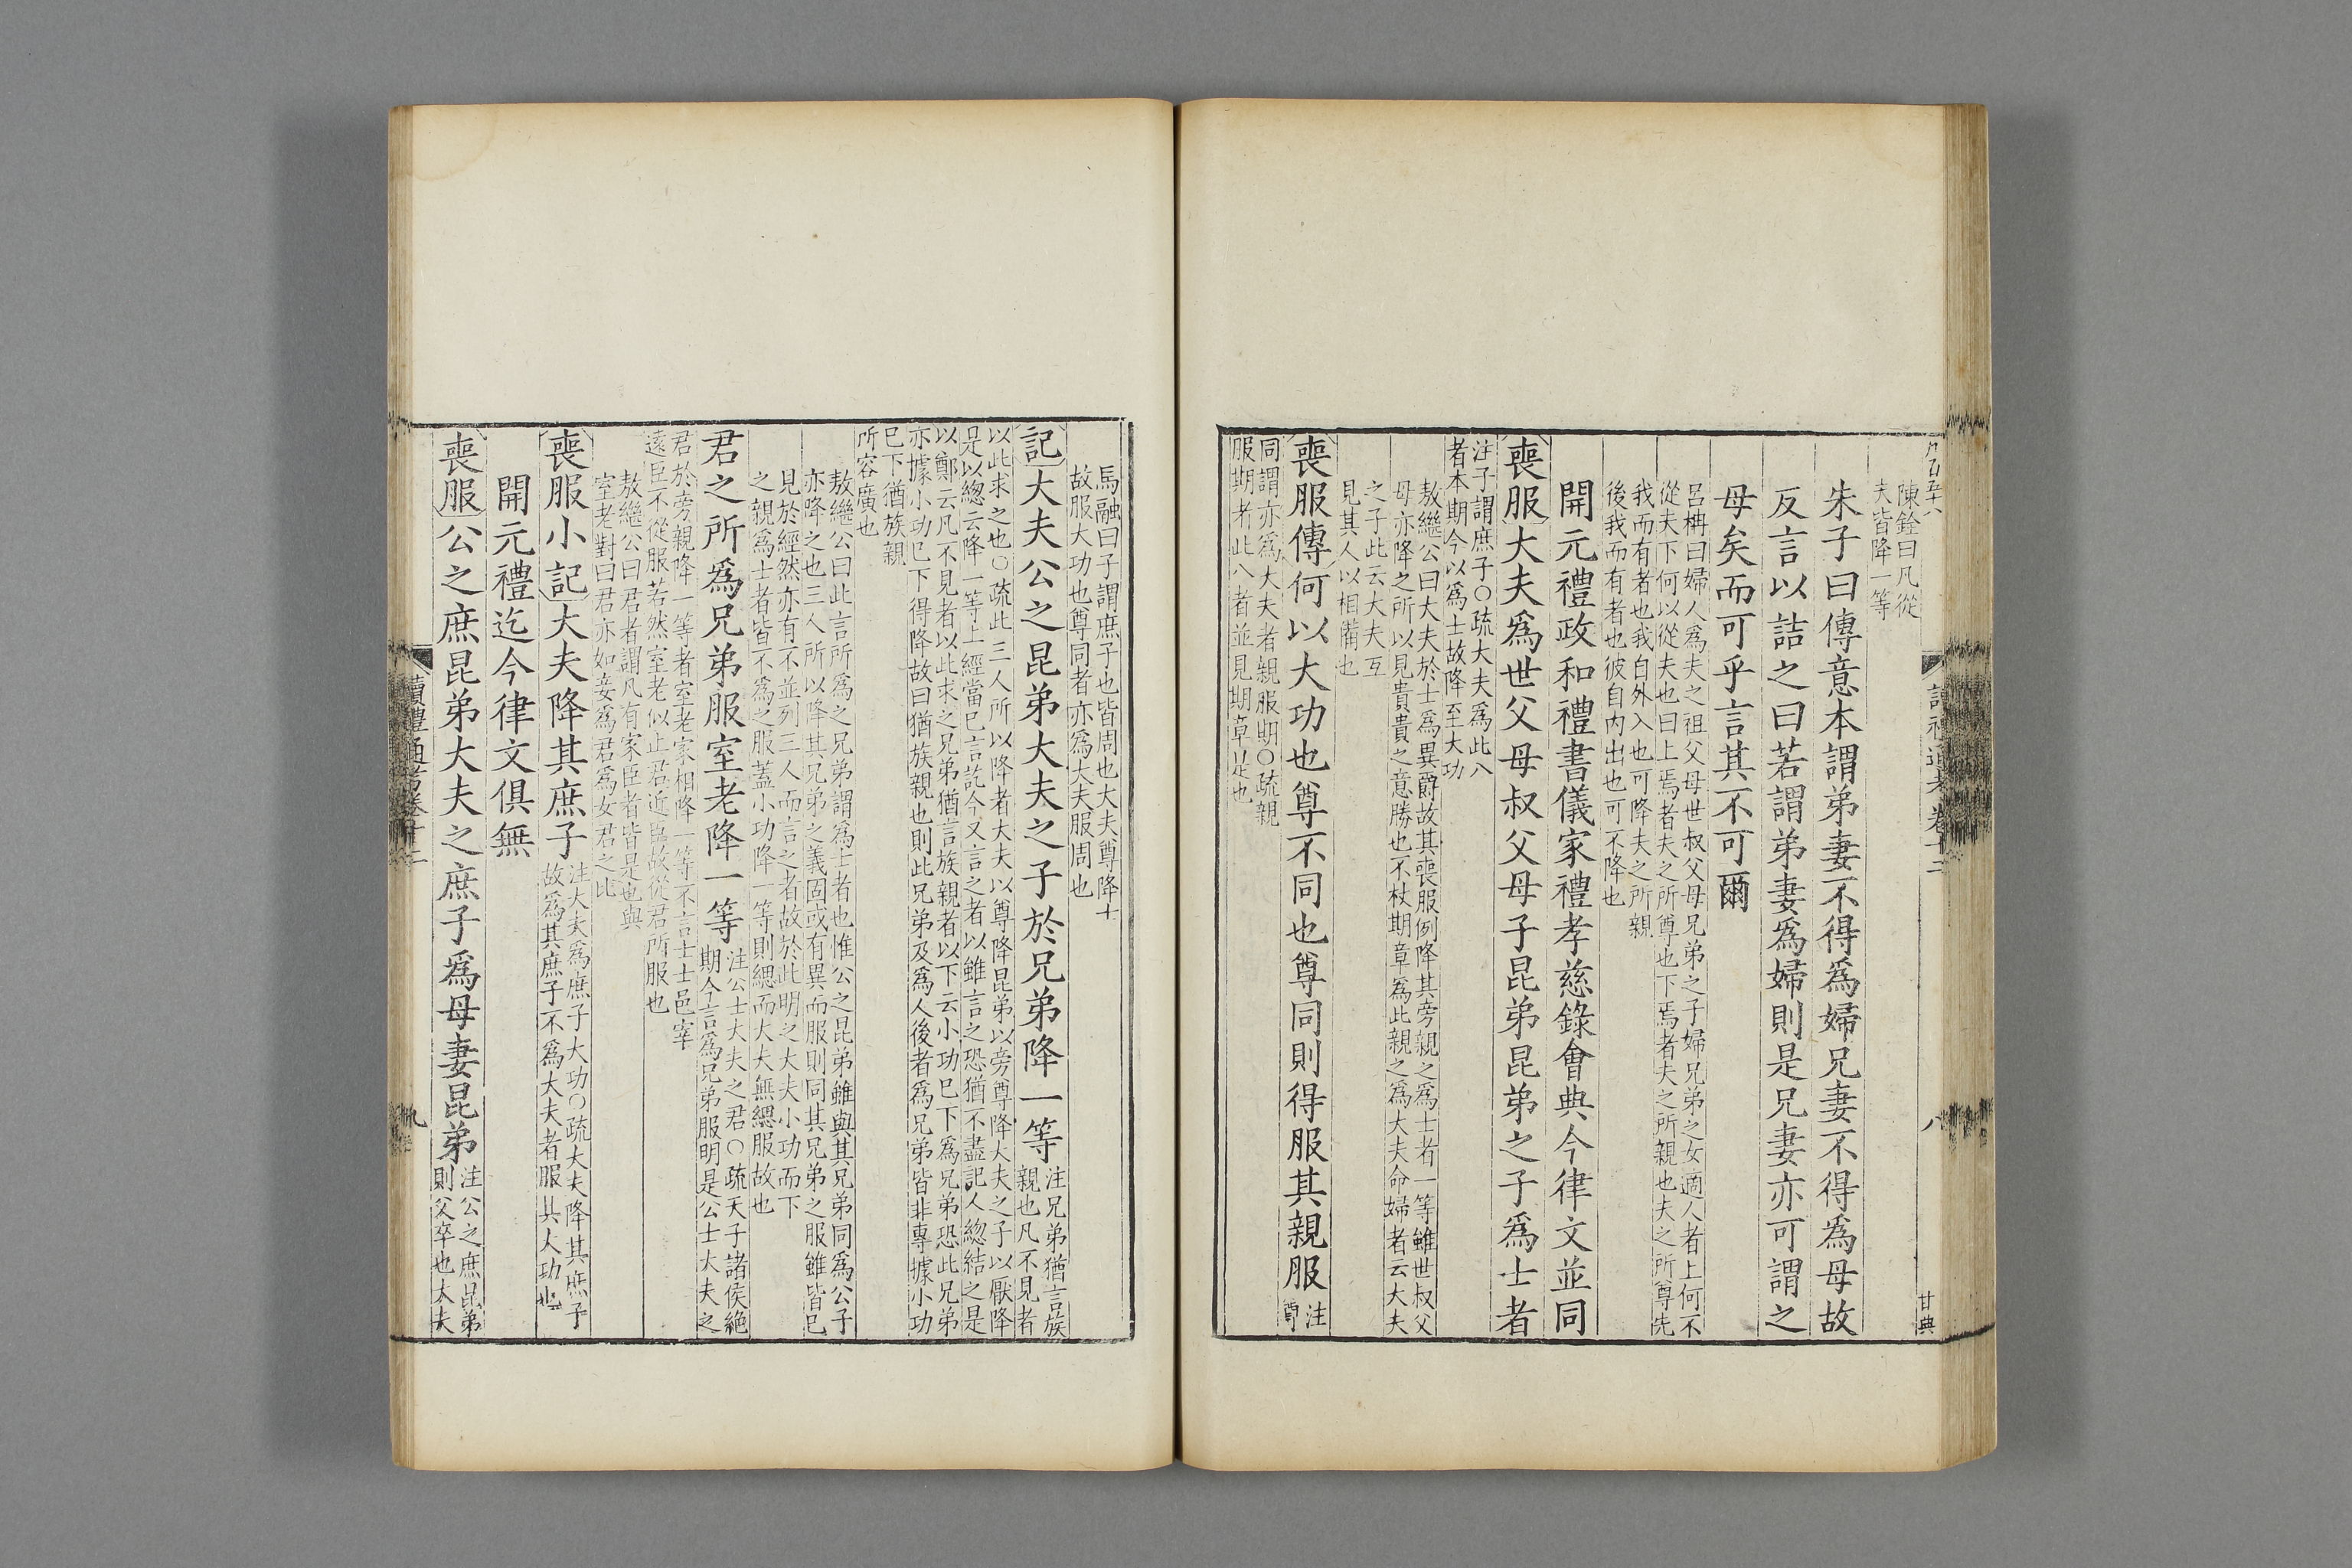 陳銓曰凡從
夫皆降一等
朱子曰傳意本謂弟妻不得爲婦兄妻不得爲母故
反言以詰之曰若謂弟妻爲婦則是兄妻亦可謂之
母矣而可乎言其不可爾
呂柟曰婦人爲夫之祖父母世叔父母兄弟之子婦兄弟之女適人者上何不
從夫下何以從夫也曰上焉者夫之所尊也下焉者夫之所親也夫之所尊先
我而有者也我自外入也可降夫之所親
後我而有者也彼自内出也可不降也
開元禮政和禮書儀家禮孝慈錄會典今律文並同
喪服大夫爲世父母叔父母子昆弟昆弟之子爲士者
注子謂庶子○疏大夫爲此八
者本期今以爲士故降至大功
敖繼公曰大夫於士爲異爵故其喪服例降其旁親之爲士者一等雖世叔父
母亦降之所以見貴貴之意勝也不杖期章爲此親之爲大夫命婦者云大夫
之子此云大夫互
見其人以相備也
喪服傳何以大功也尊不同也尊同則得服其親服注
尊
同謂亦爲大夫者親服期○疏親
服期者此八者並見期章是也
八
甘典
馬融曰子謂庶子也皆周也大夫尊降士
故服大功也尊同者亦爲大夫服周也
記大夫公之昆弟大夫之子於兄弟降一等注兄弟猶言族
親也凡不見者
以此求之也○疏此三人所以降者大夫以尊降昆弟以旁尊降大夫之子以厭降
是以總云降一等上經當已言訖今又言之者以雖言之恐猶不盡記人總結之是
以鄭云凡不見者以此求之兄弟猶言族親者以下云小功已下爲兄弟恐此兄弟
亦據小功已下得降故曰猶族親也則此兄弟及爲人後者爲兄弟皆非專據小功
已下猶族親
所容廣也
敖繼公曰此言所爲之兄弟謂爲士者也惟公之昆弟雖與其兄弟同爲公子
亦降之也三人所以降其兄弟之義固或有異而服則同其兄弟之服雖皆已
見於經然亦有不並列三人而言之者故於此明之大夫小功而下
之親爲士者皆不爲之服蓋小功降一等則緦而大夫無緦服故也
君之所爲兄弟服室老降一等注公士大夫之君○疏天子諸侯絶
期今言爲兄弟服明是公士大夫之
君於旁親降一等者室老家相降一等不言士士邑宰
遠臣不從服若然室老似止君近臣故從君所服也
敖繼公曰君者謂凡有家臣者皆是也與
室老對曰君亦如妾爲君爲女君之比
喪服小記大夫降其庶子注大夫爲庶子大功○疏大夫降其庶子
故爲其庶子不爲大夫者服其大功也
開元禮迄今律文俱無
喪服公之庶昆弟大夫之庶子爲母妻昆弟注公之庶昆弟
則父卒也大夫
讀禮通考卷十二